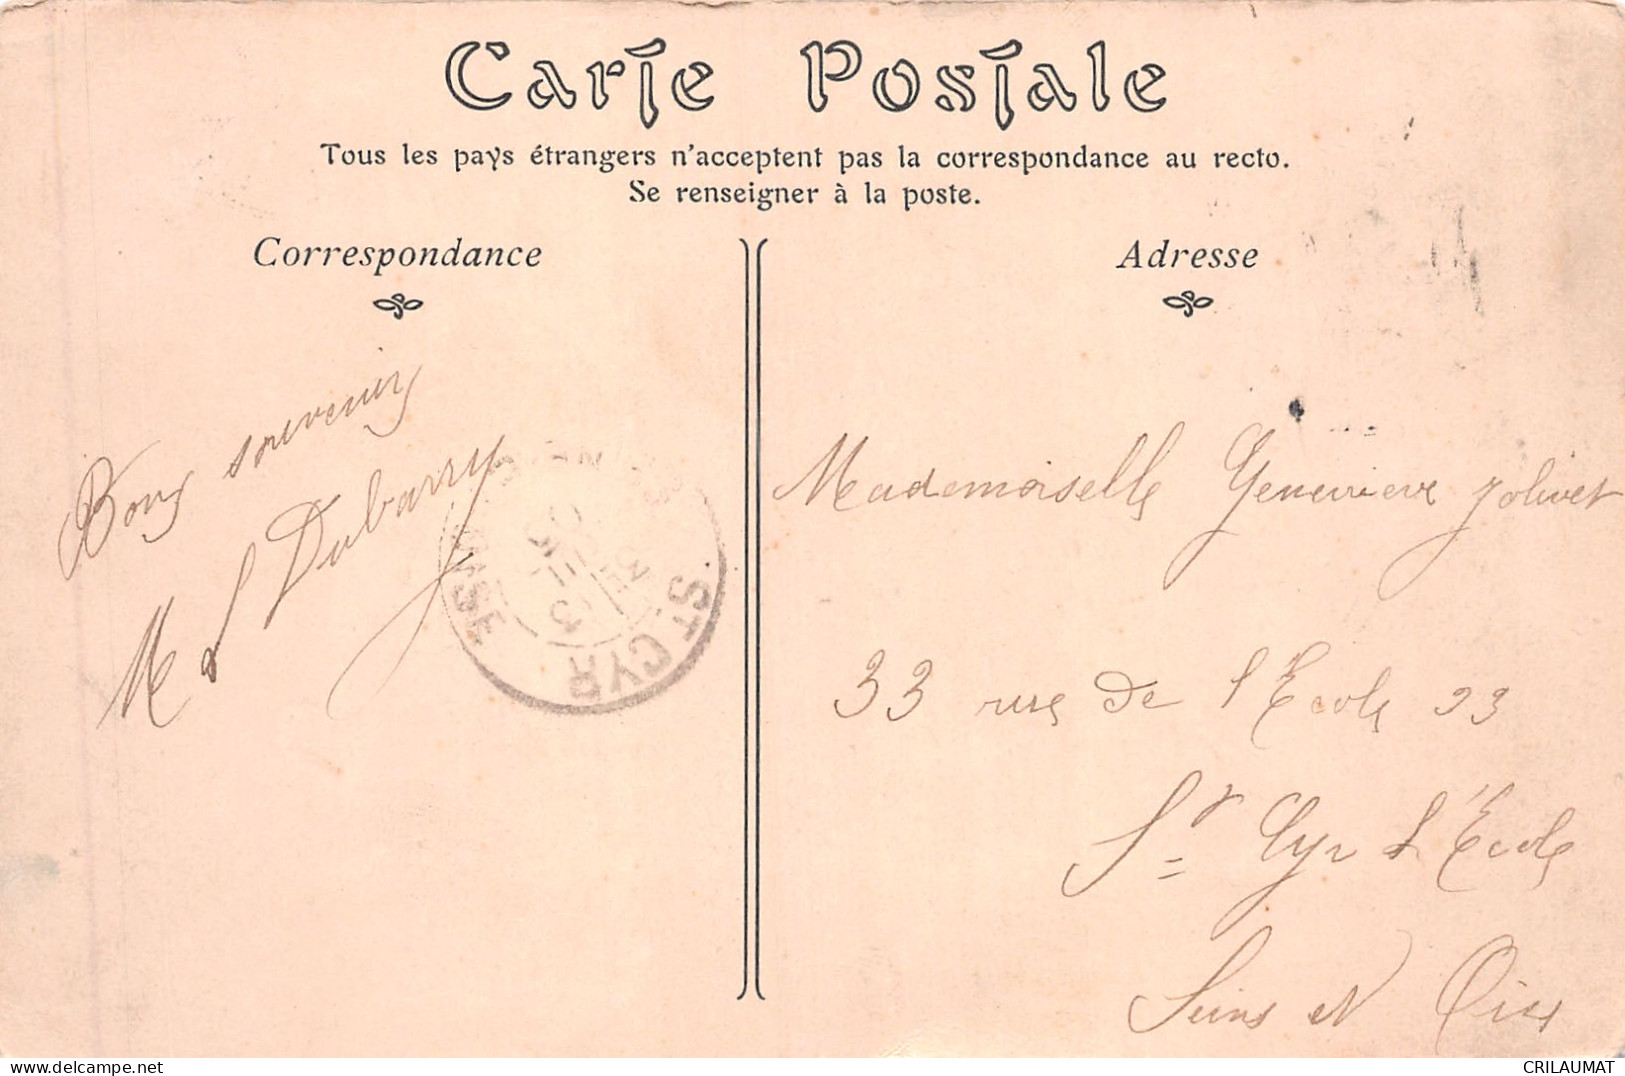 Carte Postale
Tous les pays étrangers n'acceptent pas la correspondance au recto.
Se renseigner à la poste.
Correspondance
Adresse
Bons souvenirs
Dubarry
ST CYR
Mademoiselle Genevieve Jolivet
33 rue de l'Ecole 33
St Cyr l'École
Seine et Oise
CRILAUMAT